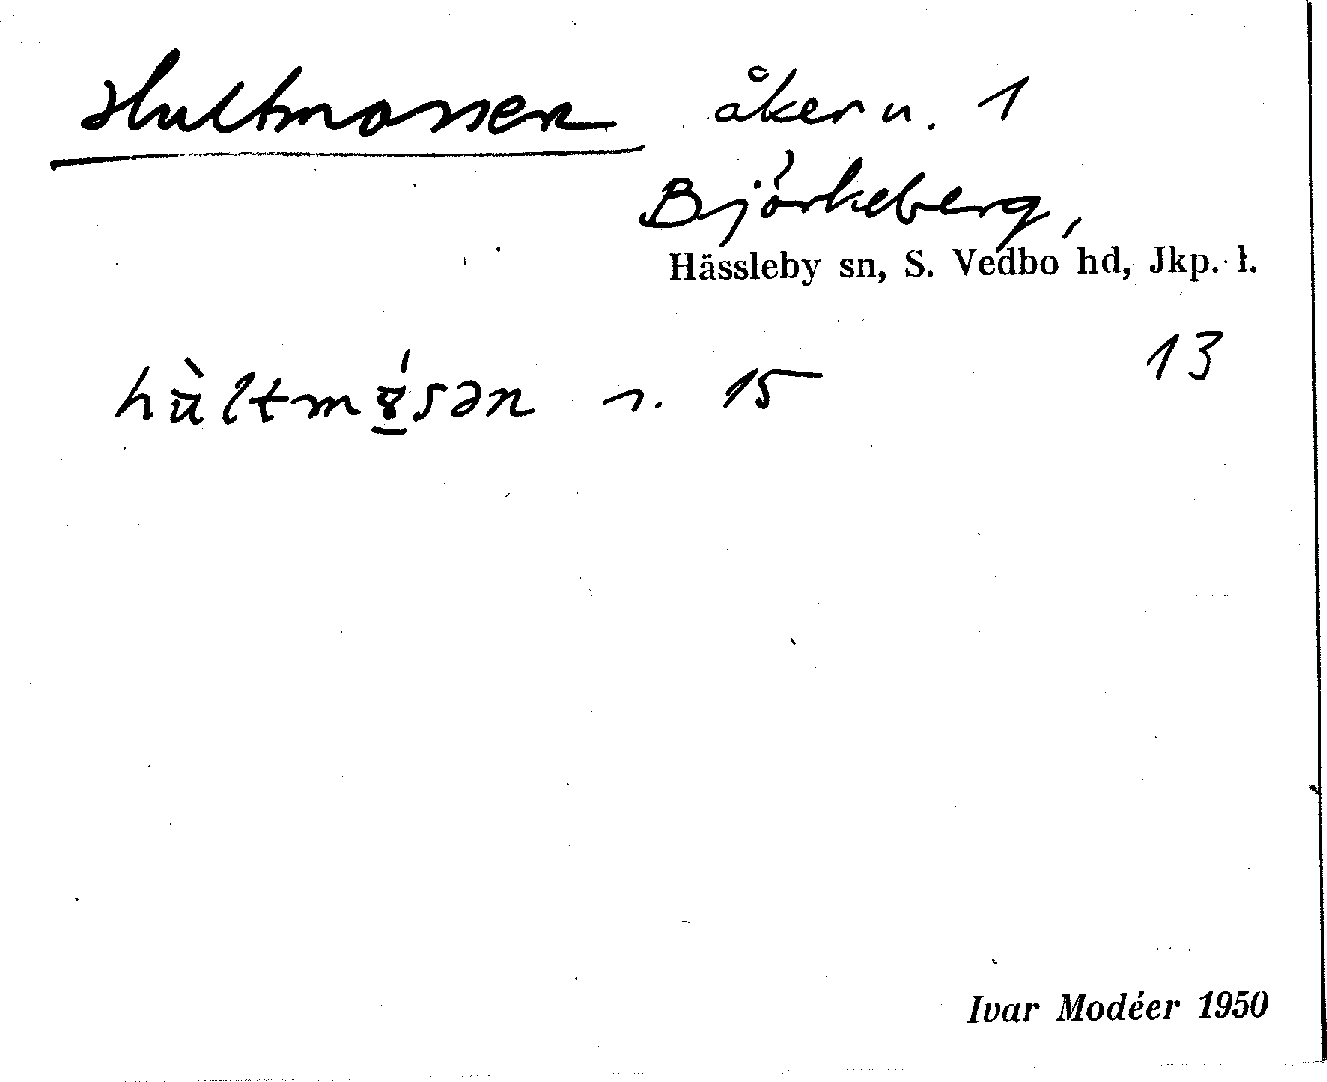 Hultmossen åker n. 1
Björkeberg,
Hässleby sn, S. Vedbo hd, Jkp. l.
13
n. 15
Ivar Modéer 1950